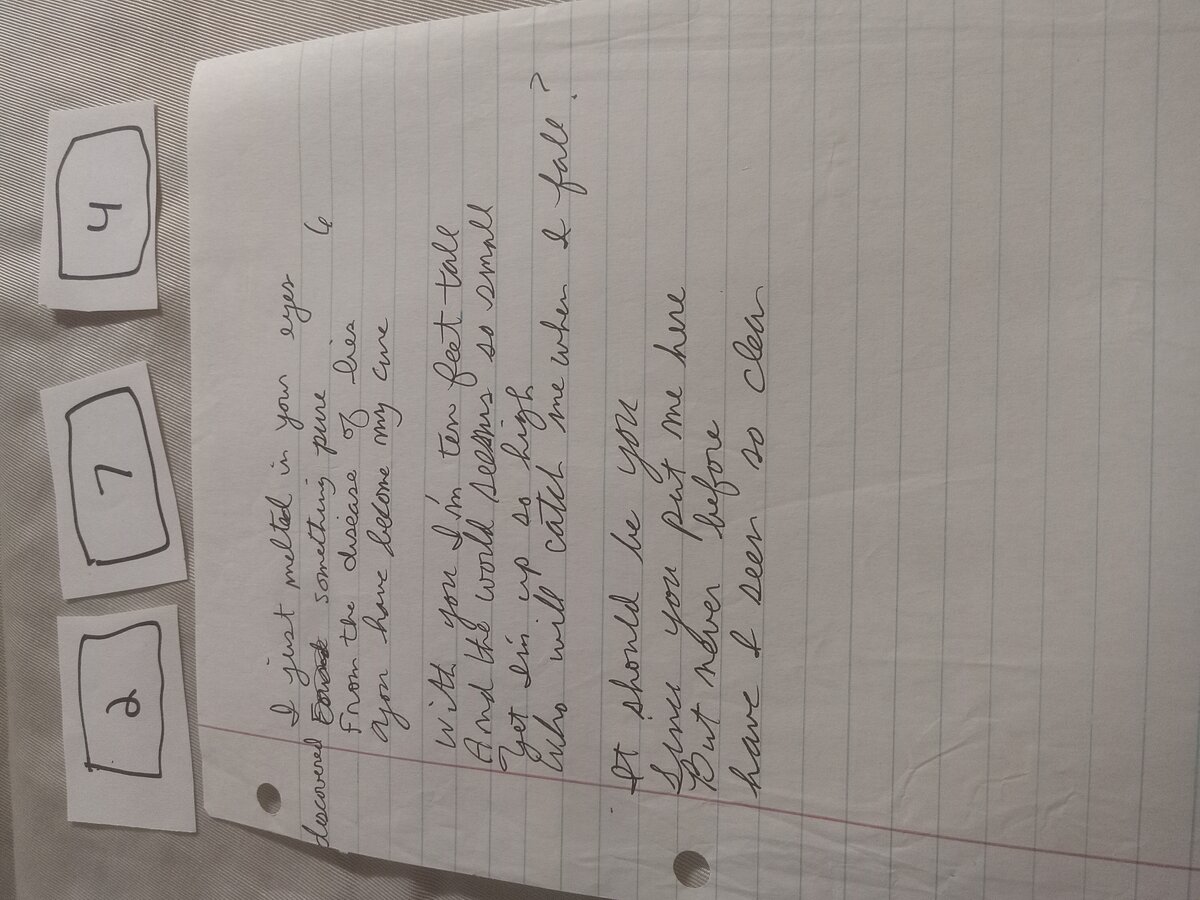 2
7
4
I just melted in your eyes
discovered something pure 6
From the disease of lies
you have become my cure
With you I'm ten feet tall
And the world seems so small
Yet I'm up so high
Who will catch me when I fall?
It should be you
Since you put me here
But never before
have I seen so clear